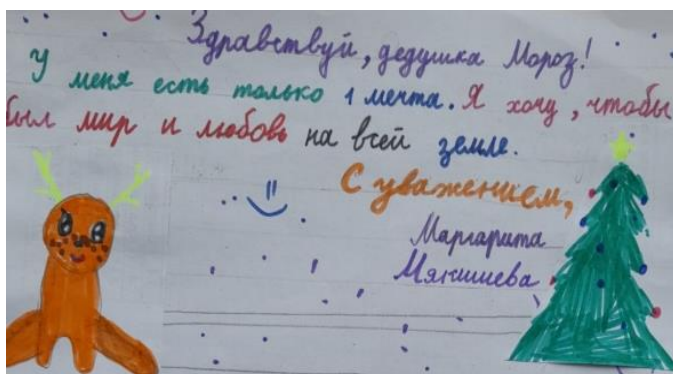 Здравствуй, дедушка Мороз!
У меня есть только 1 мечта. Я хочу, чтобы
был мир и любовь на всей земле.
С уважением,
Маргарита
Мякишева